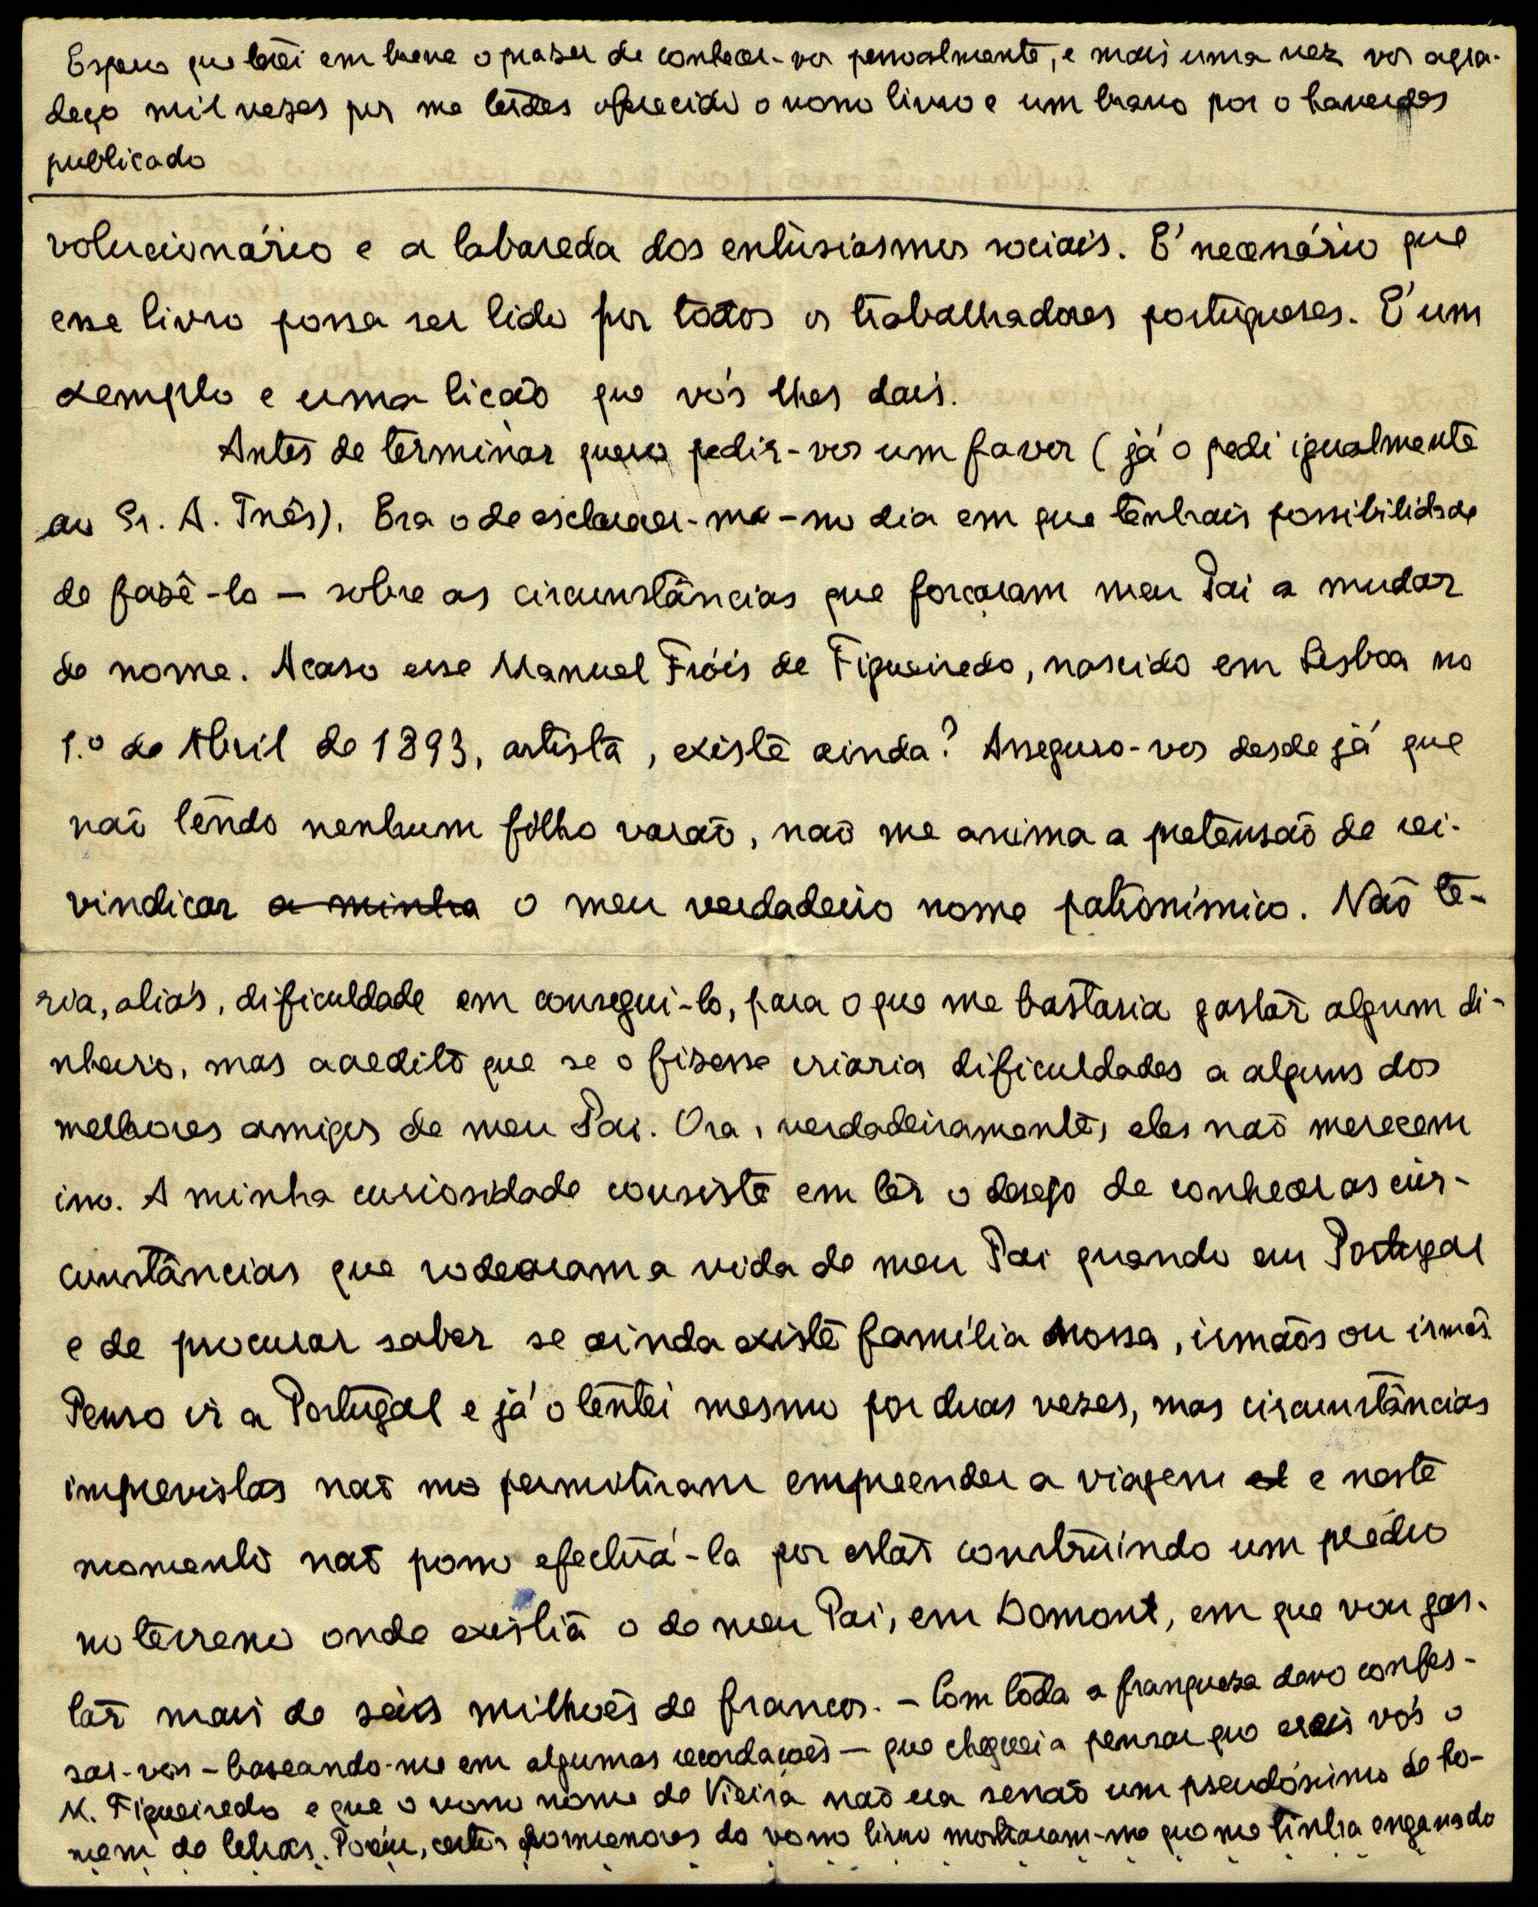 Espero que terei em breve o prazer de conhecer-vos pessoalmente, e mais uma vez vos agra-
deço mil vezes por me terdes oferecido o vosso livro e um bravo por o haverdes
publicado
volucionário e a labareda dos entusiasmos sociais. É necessário que
esse livro possa ser lido por todos os trabalhadores portugueses. É um
exemplo e uma lição que vós lhes dais.
Antes de terminar quero pedir-vos um favor (já o pedi igualmente
ao Sr. A. Inês). Era o de esclarecer-me - no dia em que tenhais possibilidade
de fazê-lo - sobre as circunstâncias que forçaram meu Pai a mudar
de nome. Acaso esse Manuel Fróis de Figueiredo, nascido em Lisboa no
1.º de Abril de 1893, artista, existe ainda? Asseguro-vos desde já que
não tendo nenhum filho varão, não me anima a pretensão de rei-
vindicar a minha o meu verdadeiro nome patronímico. Não te-
ria, aliás, dificuldade em consegui-lo, para o que me bastaria gastar algum di-
nheiro, mas acredito que se o fizesse criaria dificuldades a alguns dos
melhores amigos de meu Pai. Ora, verdadeiramente, eles não merecem
isso. A minha curiosidade consiste em ter o desejo de conhecer as cir-
cunstâncias que rodearam a vida de meu Pai quando em Portugal
e de procurar saber se ainda existe família nossa, irmãos ou irmãs.
Penso ir a Portugal e já o tentei mesmo por duas vezes, mas circunstâncias
imprevistas não mo permitiram empreender a viagem e neste
momento não posso efectuá-la por estar construindo um prédio
no terreno onde existia o de meu Pai, em Domont, em que vou gas-
tar mais de seis milhões de francos. - Com toda a franqueza devo confes-
sar-vos - baseando-me em algumas recordações - que cheguei a pensar que ereis vós o
M. Figueiredo e que o vosso nome de Vieira não era senão um pseudónimo de ho-
mem de letras. Porém, certos pormenores do vosso livro mostraram-me que me tinha enganado